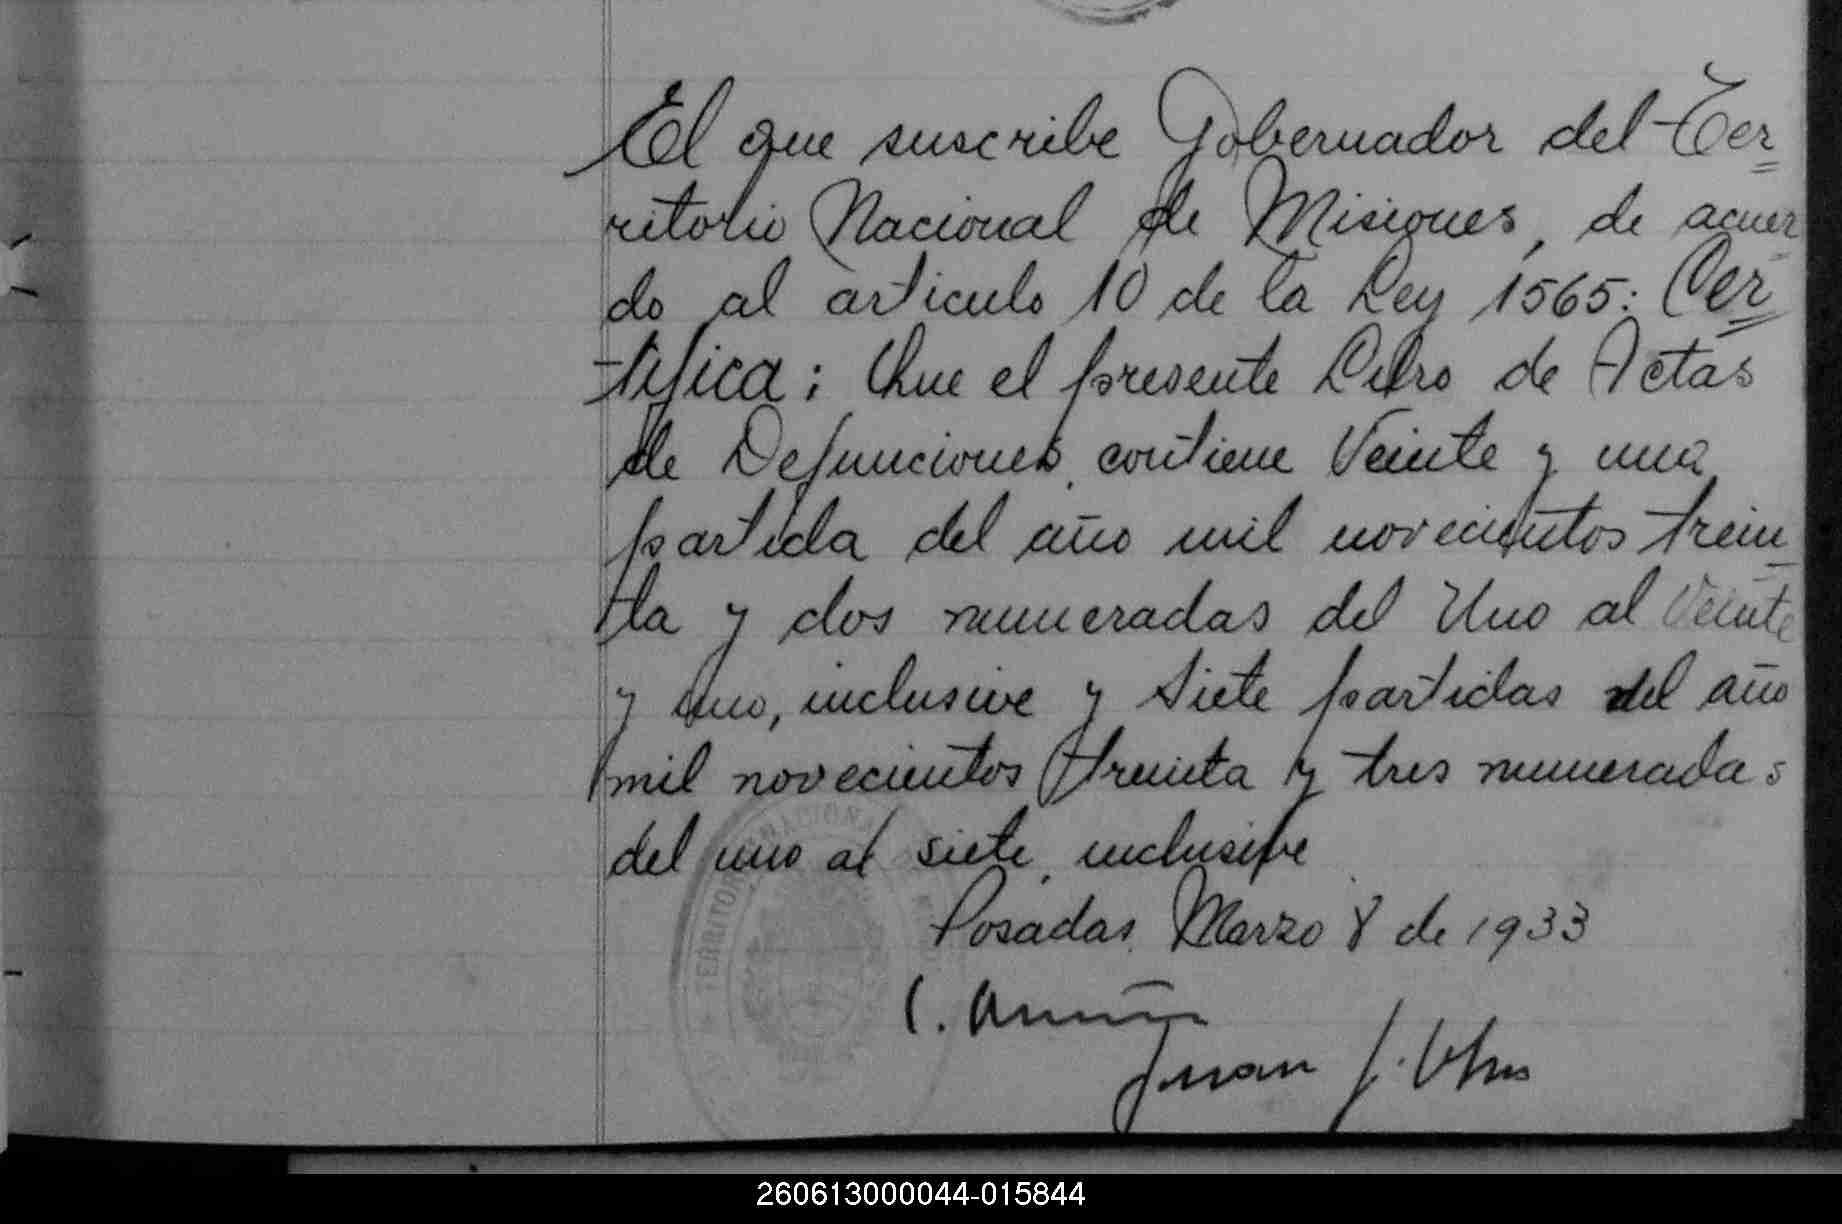 El que suscribe Gobernador del Ter=
ritorio Nacional de Misiones, de acuer-
do al articulo 10 de la Ley 1565: Cer=
tifica: Que el presente Libro de Actas
de Defunciones, contiene Veinte y una
partida del año mil novecientos trein-
ta y dos numeradas del Uno al Veinte
y uno, inclusive y siete partidas del año
mil novecientos treinta y tres numeradas
del uno al siete, inclusive
Posadas, Marzo 8 de 1933
C.
Juan J.
TERRITORIO NACIONAL
260613000044-015844